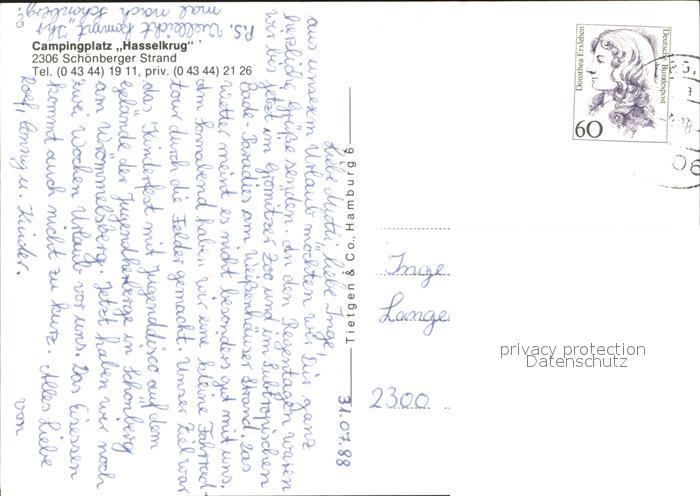 Campingplatz „Hasselkrug"
2306 Schönberger Strand
Tel. (0 43 44) 19 11, priv. (0 43 44) 21 26
31.07.88
Liebe Mutti, liebe Inge,
aus unserem Urlaub möchten wir Dir ganz
herzliche Grüße senden. In den Regentagen waren
wir bis jetzt im Grömitzer Zoo und im Subtropischen
Bade-Paradies am Weißenhäuser Strand. Das
Wetter meint es nicht besonders gut mit uns.
Am Sonnabend haben wir eine kleine Fahrrad-
tour durch die Felder gemacht. Unser Ziel war
das Kinderfest mit Jugenddisco auf dem
Gelände der Jugendherberge in Schönberg
am Wrömmelsberg. Jetzt haben wir noch
zwei Wochen Urlaub vor uns. Das Eisessen
kommt auch nicht zu kurz. Alles Liebe
von
Rolf, Conny u. Kinder.
P.S. Vielleicht kommt Ihr
mal nach Schönberg?
Tietgen & Co., Hamburg 6
Dorothea Erxleben
Deutsche Bundespost
60
Inge
Lange
2300
privacy protection
Datenschutz